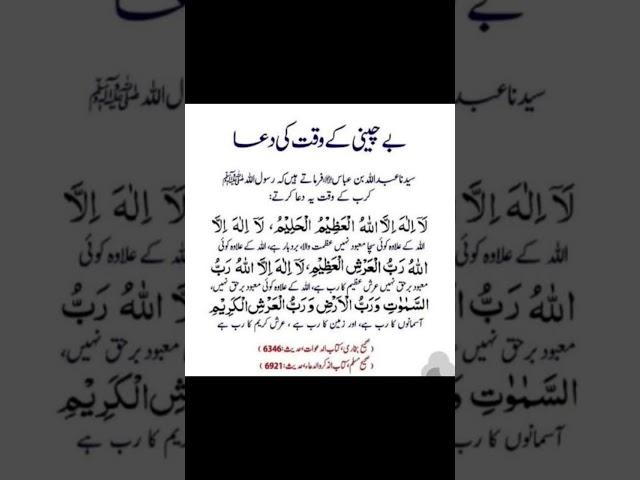 بے چینی کے وقت کی دعا
سیدنا عبداللہ بن عباس فرماتے ہیں کہ رسول اللہ ﷺ
کرب کے وقت یہ دعا کرتے:
لَآ اِلٰهَ اِلَّا اللهُ الْعَظِيْمُ الْحَلِيْمُ، لَآ اِلٰهَ اِلَّا
اللہ کے علاوہ کوئی سچا معبود نہیں عظمت والا، بردبار ہے، اللہ کے علاوہ کوئی
اللهُ رَبُّ الْعَرْشِ الْعَظِيْمِ، لَآ اِلٰهَ اِلَّا اللهُ رَبُّ
معبود برحق نہیں عرش عظیم کا رب ہے، اللہ کے علاوہ کوئی معبود برحق نہیں،
السَّمٰوٰتِ وَرَبُّ الْاَرْضِ وَرَبُّ الْعَرْشِ الْكَرِيْمِ
آسمانوں کا رب ہے، اور زمین کا رب ہے، عرش کریم کا رب ہے
(صحیح بخاری، کتاب الدعوات، حدیث: 6346)
(صحیح مسلم، کتاب الذکر والدعاء، حدیث: 6921)